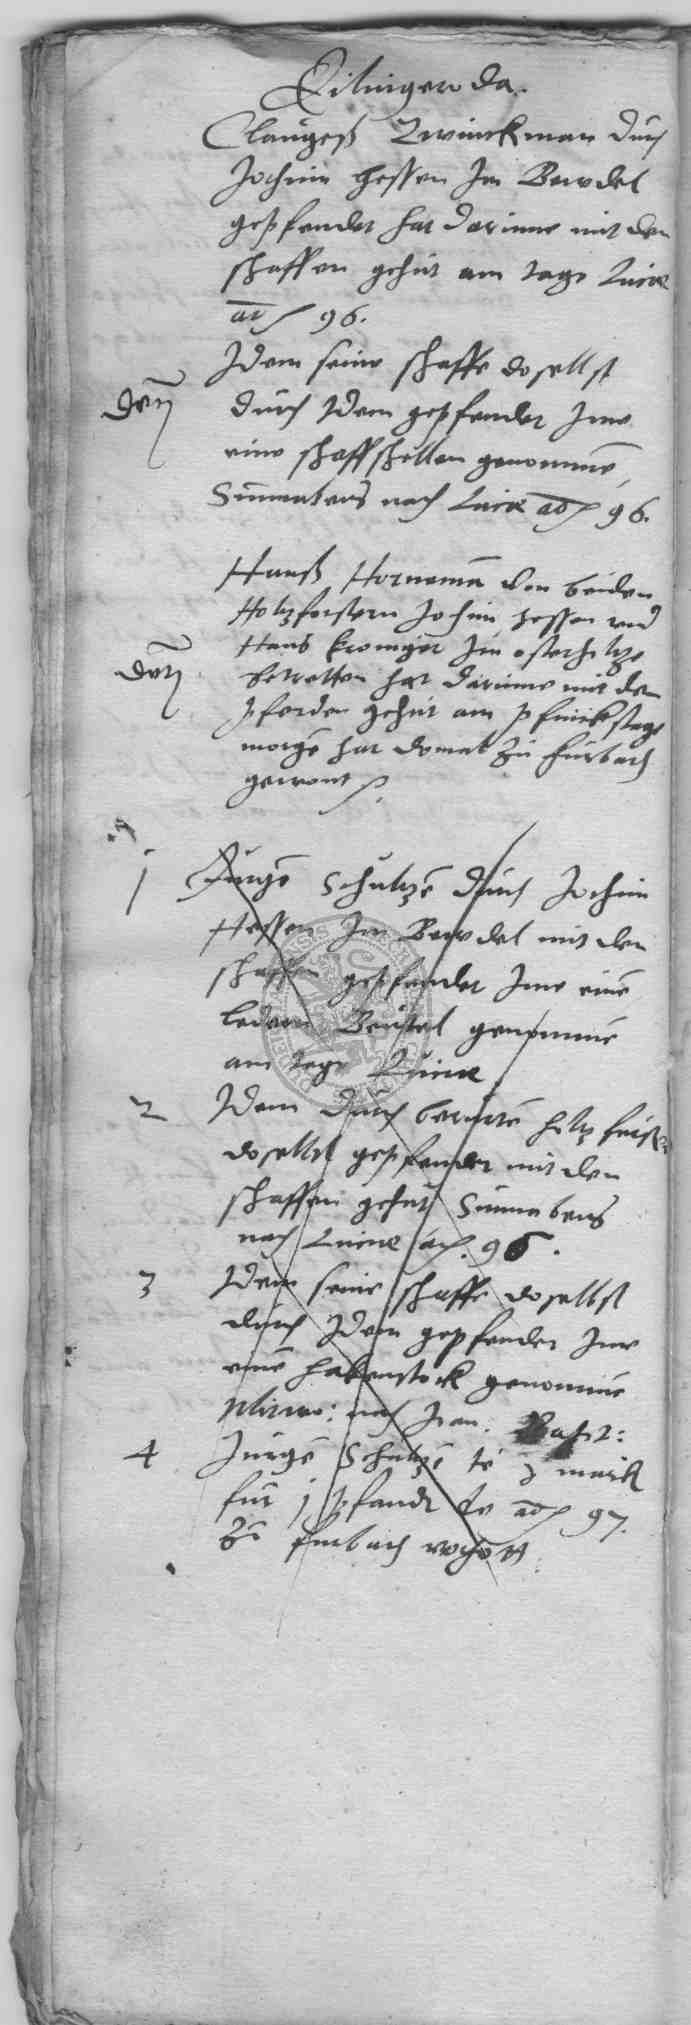 Eilingeroda.
Claugeß Zwinckman durch
Jochim Hessen Im Berndel
gepfendet hat darinne mit den
schaffen gehut am tage Lucæ
ao 96.
Idem seine schaffe doselbst
durch Idem gepfendet Ime
eine schaffschellen genommē
Sunnabens nach Lucæ ao 96.
Hanß Hornemā den beiden
Holtzforstern Jochim Hessen und
Hans Kroniger Im osterholtze
betretten hat darinne mit den
pferden gehut am pfinckstage
morgē hat domals zu furbach
gewont
1 Jurgē Schultzē durch Jochim
Hessen Im Berndel mit den
schaffen gepfendet Ime einē
ledern Beustel genommē
am tage Lucæ
2 Idem durch berurtē holtz furster
doselbst gepfendet mit den
schaffen gehut Sunnabens
nach Lucæ ao. 96.
3 Idem seine schaffe doselbst
durch Idem gepfendet Ime
einē hakenstock genommē
nach Joan. Bapt:
4 Jurgē Schultzē 3 marck
fur j pfandt ao 97.
Zu furbach